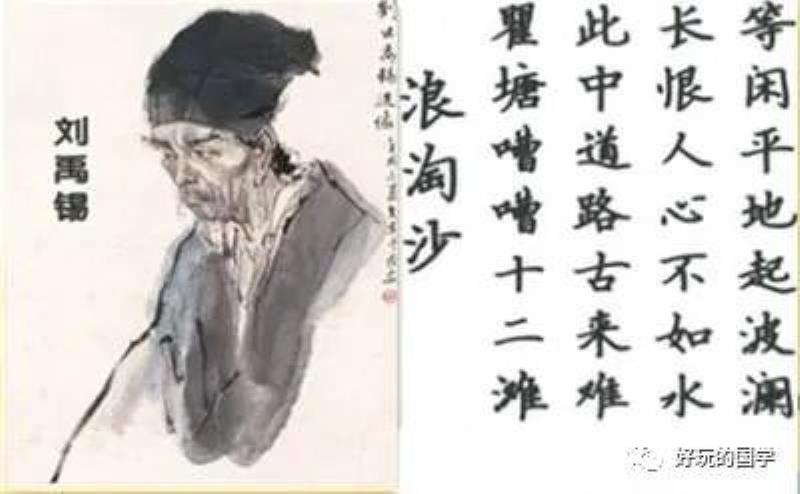 刘禹锡
浪淘沙
瞿塘嘈嘈十二滩
此中道路古来难
长恨人心不如水
等闲平地起波澜
好玩的国学